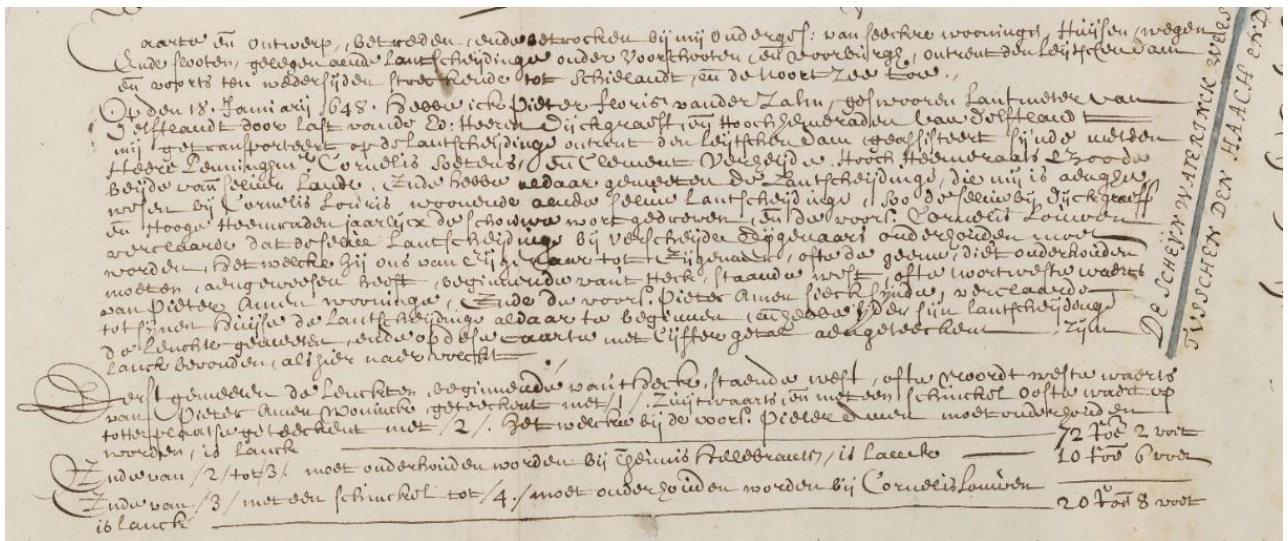 Caarte en̄ ontwerp, betreden, ende betrocken bij mij onderges: van seeckre wooninge, Huijsen, wegen
Ende slooten, gelegen aende Lantscheijdinge onder Voorschooten, en̄ Voorburgh, ontrent den Leijtschen dam
en̄ voorts ten wedersijden streckende tot Schielandt, en̄ de Noort Zee toe.
Op den 18. Januarij 1648. Hebbe ick Pieter Floris vander Salm, geswooren Lantmeter van
Delftlandt door last vande Ed: Heeren Dijckgraeff, en̄ Hooch heemeraden van Delftlandt
mij getransporteert op de Lantscheijdinge ontrent den Leijtschen dam, geassisteert sijnde metden
Heere Penninghmr. Cornelis Soetens, en̄ Clement Verheijde, Hooch Heemeraats Boode
beijde van selven Lande. Ende hebbe aldaar gemeeten de Lantscheijdinge, die mij is aenghe
wesen bij Cornelis Louris woonende aende selve Lantscheijdinge, soo deselve bij Dijckgraeff
en̄ Hooge Heemraden jaarlijcx de schouwe wort gedreven, en̄ de voors. Cornelis Louwen
verclaarde dat deselve Lantscheijdinge bij verscheijde Eijgenaars onderhouden moet
worden, het welcke hij ons van Eijgenaar tot Eijgenaar, ofte de geene, diet onderhouden
moeten, aengeweesen heeft, beginnende van't Heck, staande west, ofte noortweste waerts
van Pieter Amen wooninge, Ende de voors. Pieter Amen sieck sijnde, verclaarde
tot sijnen Huijse de Lantscheijdinge aldaar te beginnen, en̄ hebbe ijder sijn Lantscheijdinge
de Lenchte gemeeten, ende op dese Caarte met Cijffer getal aengeteeckent, Zijn
lanck bevonden, als hier naer volcht
Eerst gemeeten de Lenckten, beginnende van't Hecke, staende west, ofte Noordt weste waerts
van Pieter Amen Wooninck, geteeckent met /1/ Zuijtwaarts, en̄ met een schinckel Ooste waert op
totter plaetse geteeckent met /2/. Het welcke bij de voors. Pieter Amen moet onderhouden
worden, is lanck 72 Roē 2 voet
Ende van /2/ tot /3/ moet onderhouden worden bij Theunis Hillebrantsz, is lanck 10 Roē 6 voet
Ende van /3/ met een schinckel tot /4/ moet onderhouden worden bij Cornelis Louwen
is lanck 20 Roē 8 voet
DE SCHEIJN WATERINCK WEES
TUSSCHEN DEN HAACH END